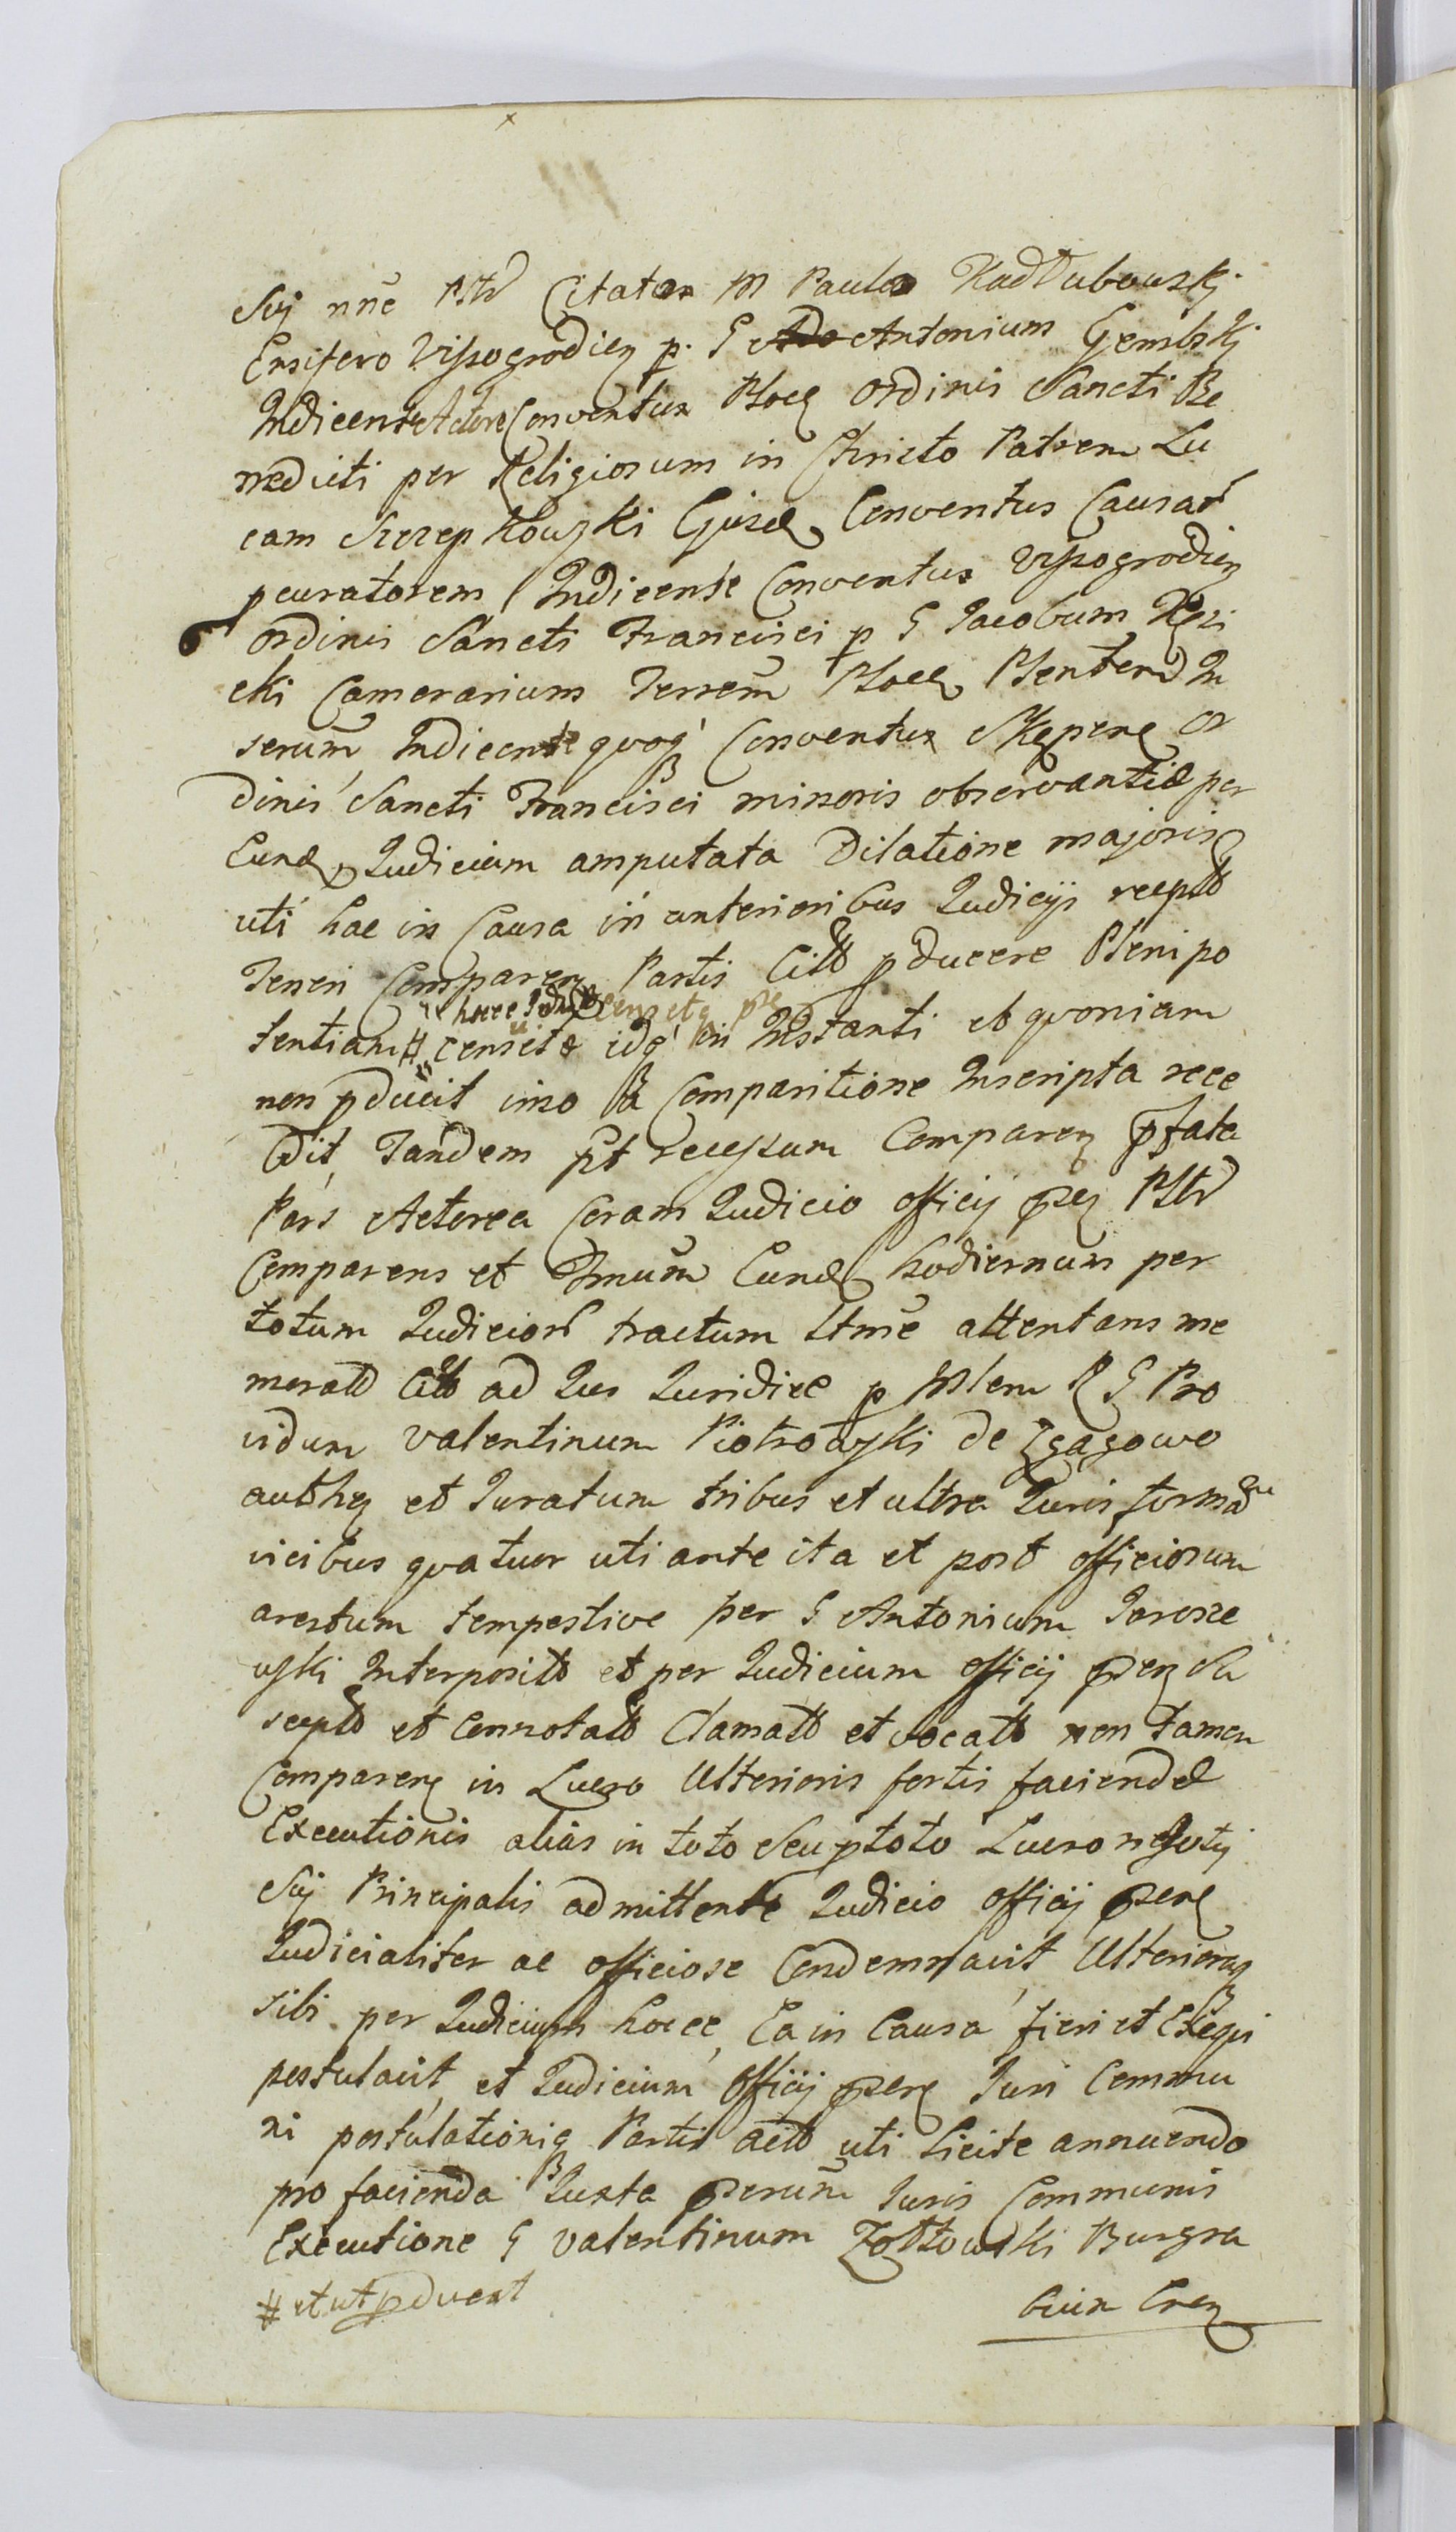 Suj nne Citatus M Paulus Kadłubowskj
Ensifero Vissogrodien p. G Antonium Gembskj
Indicente Actore Conventus Ploc Ordinis Sancti Be
nedicti per Religiosum in Christo Patrem Lu
cam Szczepkowski Ejusd Conventus Causar
pcuratorem Indicente Conventus Vissogrodien
Ordinis Sancti Francisci p G Jacobum
cki Camerarium Terrem Ploce In
serum Indicente quoq Conventus Skępene Or
dinis Sancti Francisci minoris observantiæ per
Eund Judicium amputata Dilatione majoris
uti hac in Causa in anterioribus Judicijs recept
Teneri Comparen Partis Citt pducere Plenipo
hocce Jud censet
tentiam # censet idq in Instanti et quoniam
non pducit imo a Comparitione Inscripta rece
dit, Tandem pt recessum Comparen pfata
Pars Actorea Coram Judicio officij psn
Comparens et Tmum Eund hodiernum per
totum Judicior tractum ltme attentans me
moratt Citt ad Jus Juridice p Mlem R G Pro
vidum Valentinum Piotrowski de Zgagowo
authen et Juratum tribus et ultra Juris forma
vicibus quatuor uti ante ita et post officiosum
arestum tempestive per G Antonium Jarosze
wski Interpositt et per Judicium officij psen Su
sceptt et Connotatt Clamatt et vocatt non tamen
Comparen in Lucro Ulterioris fortis faciendæ
Executionis alias in toto seu ptoto Lucro negotij
Suj Principalis admittente Judicio officij psen
Judicialiter ac officiose Condemnavit Ulteriorq
sibi per Judicium hocce, Ea in Causa fieri et Exequi
postulavit, et Judicium officij psen Juri Commu
ni postulationiq Partis actt uti licite annuendo
pro facienda Juxta pserum Juris Communis
Executione G Valentinum Zołtowski Burgra
# et ut pducat
bium Cren